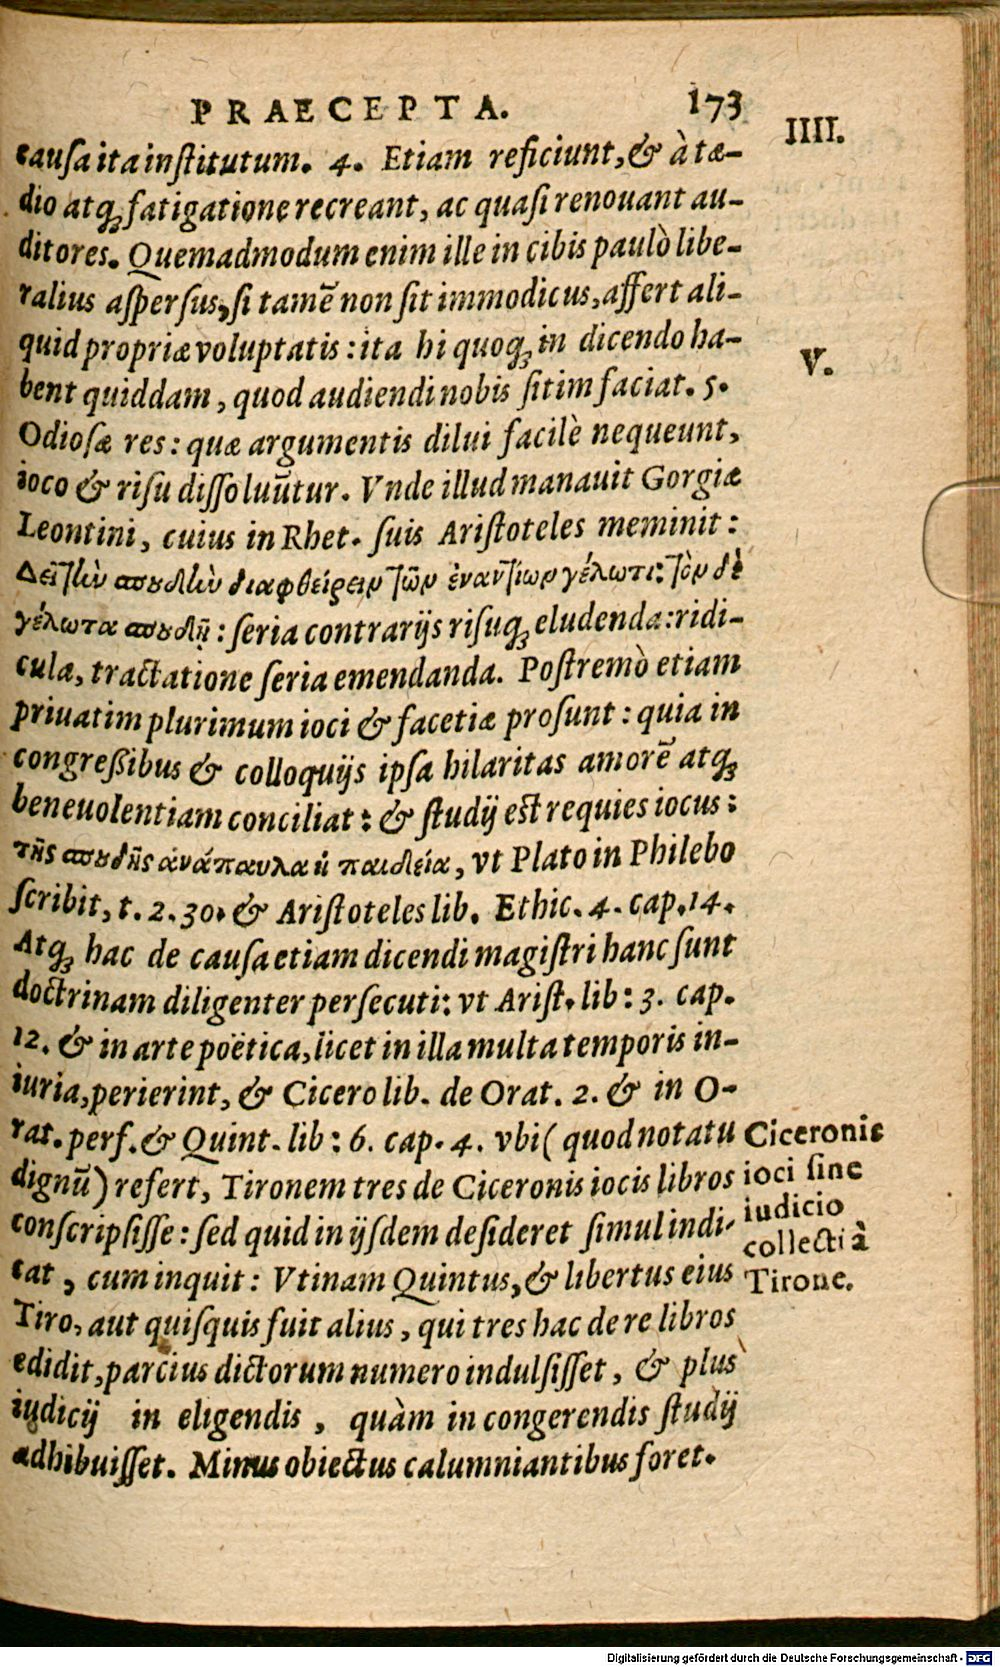 PRAECEPTA. 173
causa ita institutum. 4. Etiam reficiunt, & à tæ- IIII.
dio atq; fatigatione recreant, ac quasi renouant au-
ditores. Quemadmodum enim ille in cibis paulò libe-
ralius aspersus, si tamẽ non sit immodicus, affert ali-
quid propriæ voluptatis: ita hi quoq; in dicendo ha- V.
bent quiddam, quod audiendi nobis sitim faciat. 5.
Odiosæ res: quæ argumentis dilui facilè nequeunt,
ioco & risu dissoluũtur. Vnde illud manauit Gorgiæ
Leontini, cuius in Rhet. suis Aristoteles meminit:
Δεῖ τὴν σπουδὴν διαφθείρειν τῶν ἐναντίων γέλωτι: τὸν δὲ
γέλωτα σπουδῇ: seria contrarijs risuq; eludenda: ridi-
cula, tractatione seria emendanda. Postremò etiam
priuatim plurimum ioci & facetiæ prosunt: quia in
congreßibus & colloquijs ipsa hilaritas amorẽ atq;
beneuolentiam conciliat: & studij est requies iocus:
τῆς σπουδῆς ἀνάπαυλα ἡ παιδεία, vt Plato in Philebo
scribit, t. 2. 30. & Aristoteles lib. Ethic. 4. cap. 14.
Atq; hac de causa etiam dicendi magistri hanc sunt
doctrinam diligenter persecuti: vt Arist. lib: 3. cap.
12. & in arte poëtica, licet in illa multa temporis in-
iuria, perierint, & Cicero lib. de Orat. 2. & in O-
rat. perf. & Quint. lib: 6. cap. 4. vbi (quod notatu
dignũ) refert, Tironem tres de Ciceronis iocis libros
conscripsisse: sed quid in ijsdem desideret simul indi-
cat, cum inquit: Vtinam Quintus, & libertus eius
Tiro, aut quisquis fuit alius, qui tres hac de re libros
edidit, parcius dictorum numero indulsisset, & plus
iudicij in eligendis, quàm in congerendis studij
adhibuisset. Minus obiectus calumniantibus foret.
Ciceronis
ioci sine
iudicio
collecti à
Tirone.
Digitalisierung gefördert durch die Deutsche Forschungsgemeinschaft - DFG